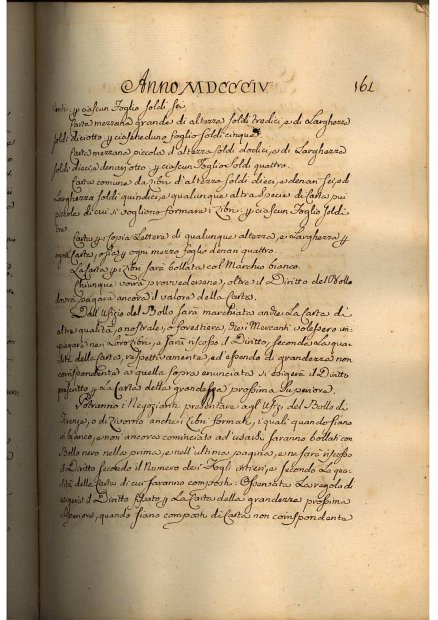 Anno MDCCCIV 161
venti: p ciascun Foglio soldi sei
Carta mezzana grande di altezza soldi tredici, e di Larghezza
soldi diciotto p ciascheduno foglio soldi cinque
Carta mezzana piccola d'altezza soldi dodici, e di Larghezza
soldi dieci, e denari otto p ciascun Foglio Soldi quattro.
Carta comune da libri d'altezza soldi dieci, e denari sei, e di
Larghezza soldi quindici, e qualunque altra specie di Carta più
piccola di cui si vogliono formare i Libri p ciascun Foglio Soldi
tre.
Carta p Copia Lettere di qualunque altezza, e Larghezza p
ogni Carta, o sia p ogni mezzo foglio denari quattro.
La Carta p i Libri sarà bollata col Marchio bianco.
Chiunque vorrà provvedersene, oltre il Diritto del Bollo
dovrà pagare ancora il valore della Carta.
Dall'Ufizio del Bollo sarà marchiata anche La Carta di
altre qualità, o nostrale, o forestiera, che i Mercanti volessero im-
piegare nei Loro Libri, e sarà riscosso il Diritto secondo La qua-
lità della Carta, respettivamente, ed essendo di grandezza non
corrispondente a quella sopra enunciata si esigerà il Diritto
prescritto p La Carta della grandezza prossima superiore.
Potranno i Negozianti presentare agl'Ufizi del Bollo di
Firenze, o di Livorno anche i Libri formati, i quali quando siano
in bianco, e non ancora cominciato ad usarsi saranno bollati con
Bollo nero nella prima, e nell'ultima pagina, e ne sarà riscosso
il Diritto secondo il Numero dei Fogli intieri, e secondo La qua-
lità della Carta di cui saranno composti: Osservata La regola di
esigere il Diritto fissato p La Carta della grandezza prossima
superiore, quando siano composti di Carta non corrispondente